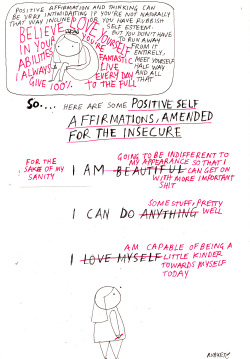 POSITIVE AFFIRMATION AND THINKING CAN
BE VERY INTIMIDATING IF YOU'RE NOT NATURALLY
THAT WAY INCLINED OR YOU HAVE RUBBISH
SELF ESTEEM.
BUT YOU DON'T HAVE
TO RUN AWAY
FROM IT
ENTIRELY,
MEET YOURSELF
HALF WAY
AND ALL
THAT
BELIEVE
IN YOUR
ABILITIES
ALWAYS
GIVE 100%
LOVE YOURSELF
YOU'RE
FANTASTIC
LIVE
EVERY DAY
TO THE FULL
SO.... HERE ARE SOME POSITIVE SELF
AFFIRMATIONS, AMENDED
FOR THE INSECURE
FOR THE
SAKE OF MY
SANITY
GOING TO BE INDIFFERENT TO
MY APPEARANCE SO THAT I
I AM BEAUTIFUL CAN GET ON
WITH MORE IMPORTANT
SHIT
SOME STUFF, PRETTY
I CAN DO ANYTHING WELL
AM CAPABLE OF BEING A
I LOVE MYSELF LITTLE KINDER
TOWARDS MYSELF
TODAY